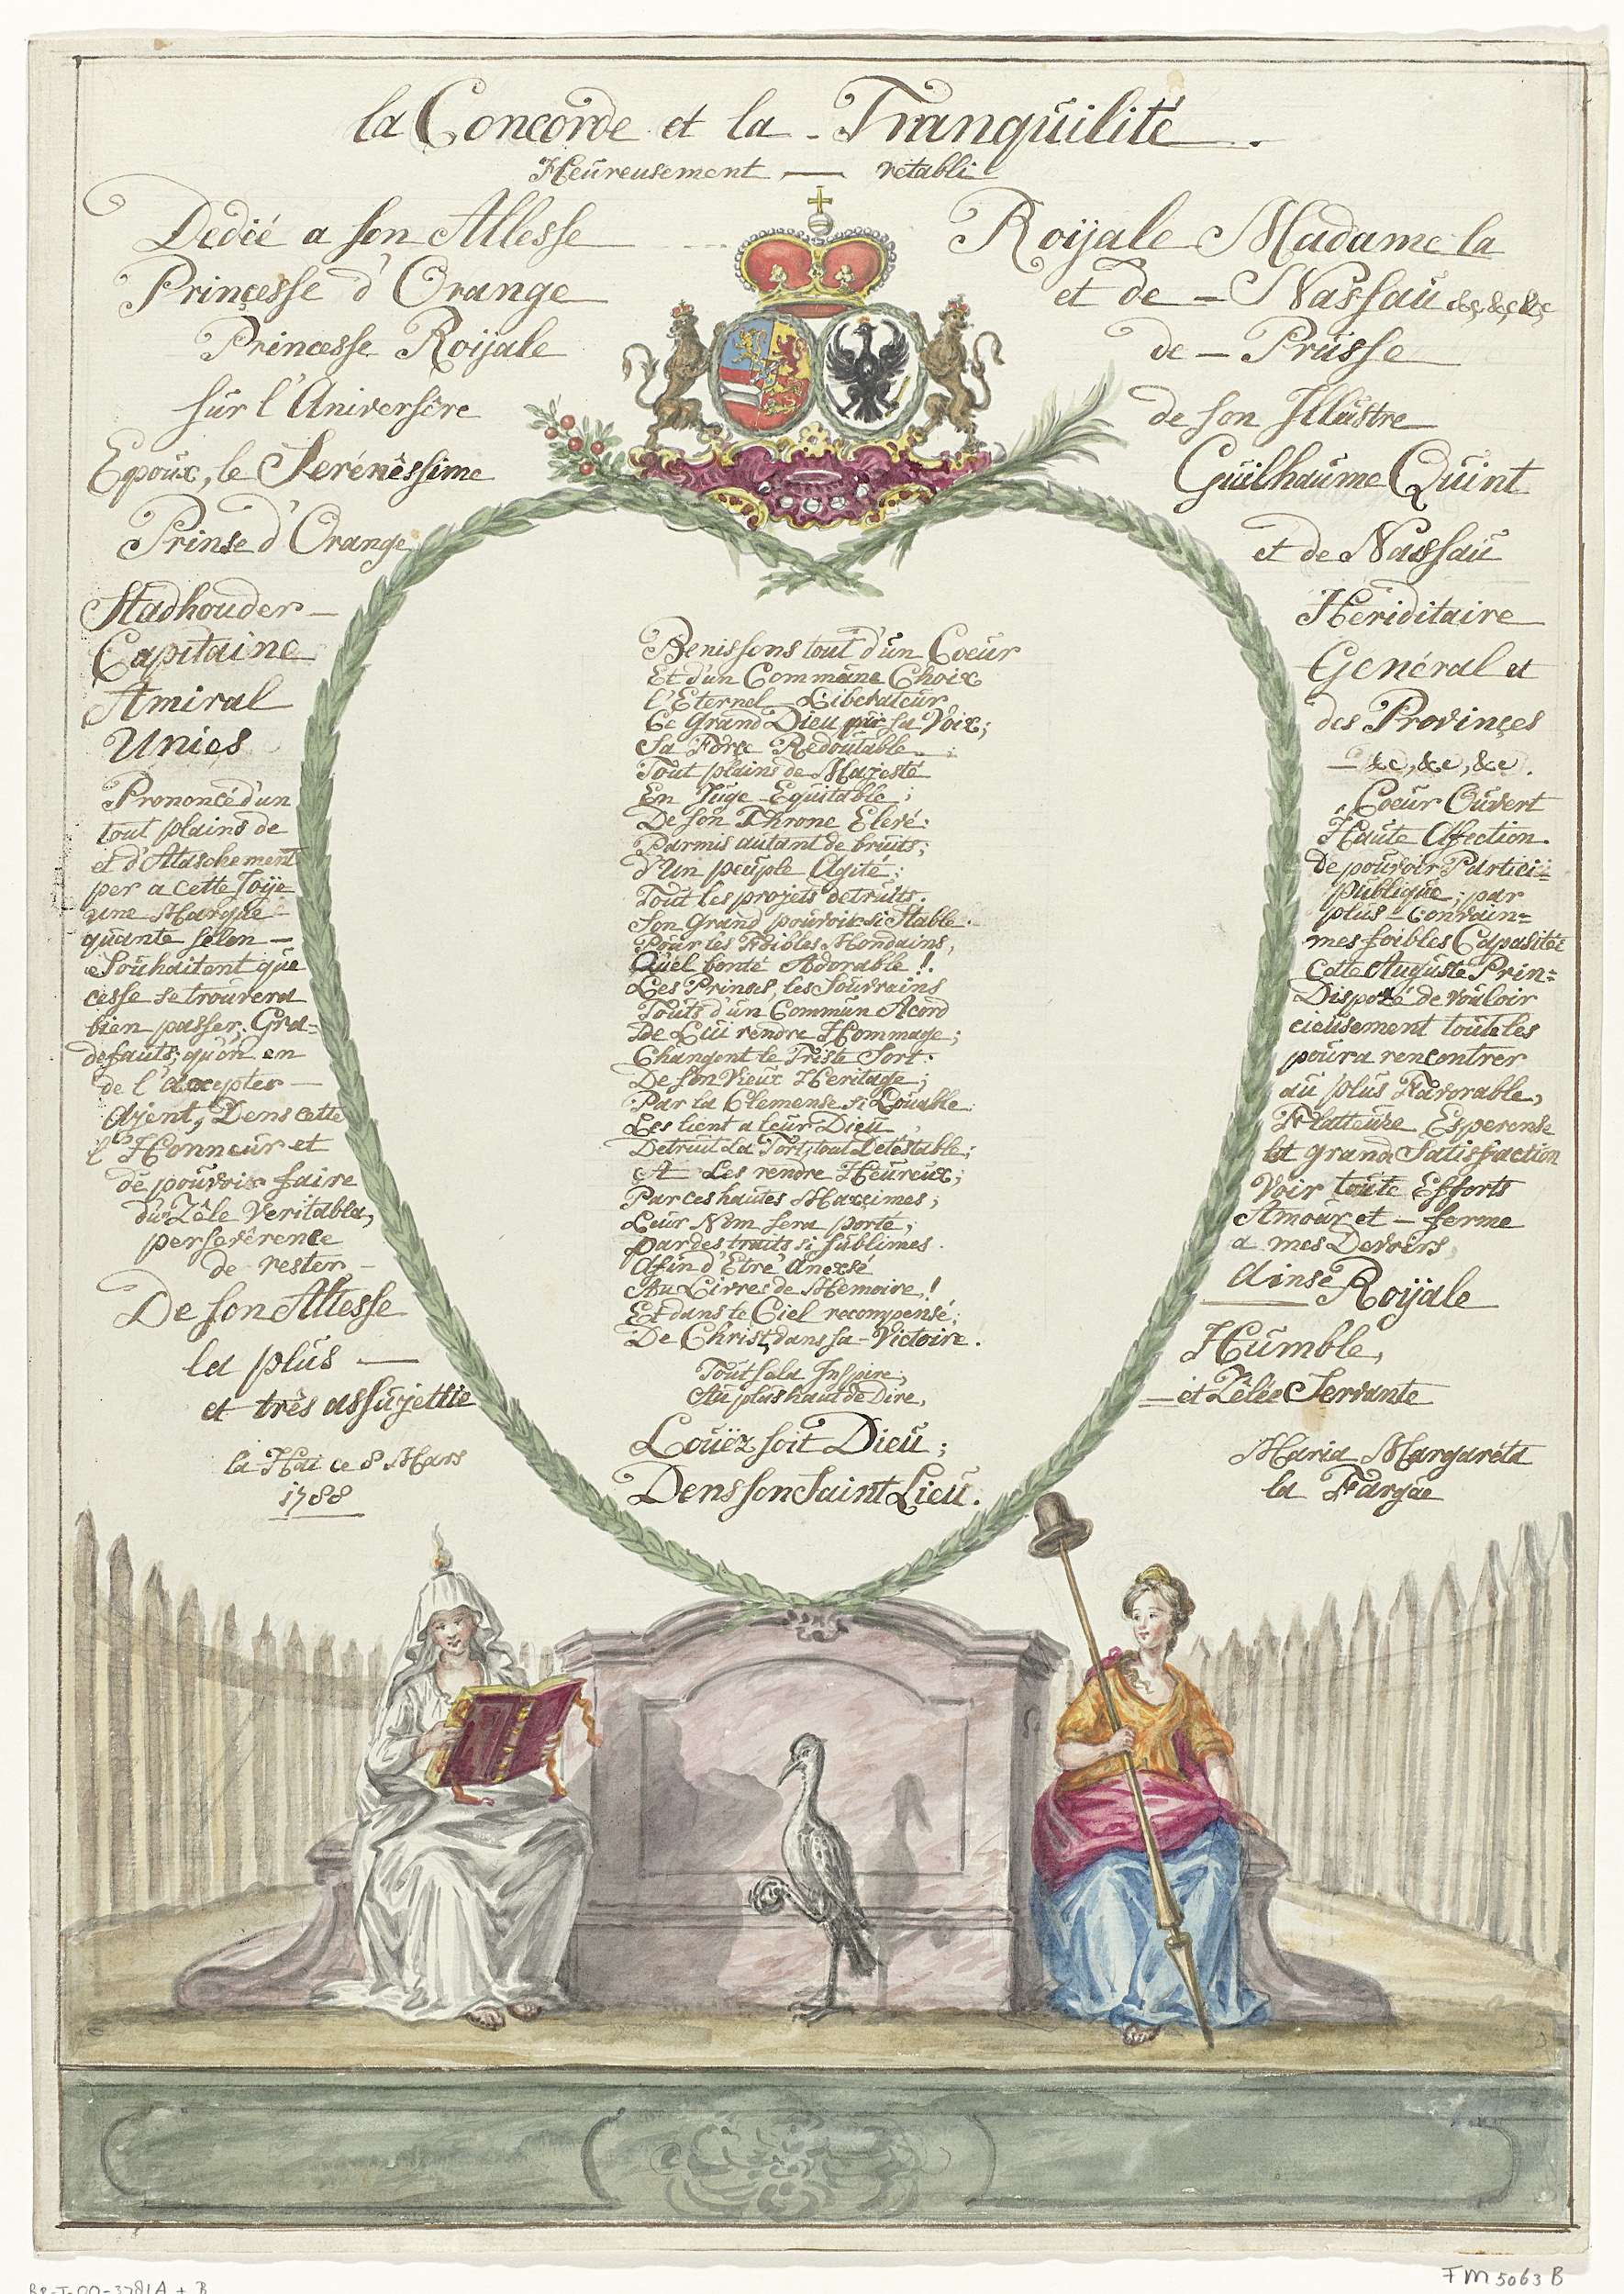 la Concorde et la - Tranquilité.
Heureusement — retabli
Dedié a son Altesse Roijale Madame la
Prinçesse d'Orange et de - Nassau &c, &c, &c
Princesse Roijale de - Prusse
sur l'Aniversêre de son Illustre
Epoux, le Serénêssime Guilhaume Quint
Prinse d'Orange et de Nassau
Stadhouder - Heriditaire
Capitaine Genéral et
Amiral des Provinçes
Unies - &c, &c, &c.
Prononcé d'un Coeur Ouvert
tout plains de Haute Affection
et d'Ataschement De pouvoir Partici=
per a cette Joije publique, par
une Marque plus - Convain=
quante selon - mes foibles Capasitée
Souhaitent que Cette Auguste Prin=
cesse se trouvera Disposé de vouloir
bien passer, Gra= cieusement toute les
defauts; qu'on en poura rencontrer
de l'accepter - au plus Favorable,
Ajent, Dens cette Flatteure Esperense
l'Honneur et et grand Satisfaction
de pouvoir faire Voir toute Efforts
du Zêle Veritable, Amour et - ferme
perseverênce a mes Devoirs
de rester - ainse
De son Altesse Roijale
la plus — Humble,
et très assujettie - et Zêlée Servante
la Hai ce 8 Mars Maria Margaréta
1788 la Fargue
Benissons tout d'un Coeur
Et d'un Commune Choix
l'Eternel Liberateur
Ce Grand Dieu par sa Voix;
Sa Force Redoutable;
Tout plains de Majesté
En Juge Equitable;
De son Throne Elevé:
Parmis autant de bruits;
d'Un peuple Agité;
Tout les projets detruits.
Son Grand pouvoir si Stable.
Pour les Foibles Mondains,
Quel bonté Adorable!
Les Prinses, les Souvrains
Touts d'un Commun Acord
De Lui rendre Hommage;
Changent le Triste Sort:
De son Vieux Heritage;
Par la Clemense si Louable
Les tient a leur Dieu
Detruit La Fort, tout Detestable;
A Les rendre Heureux;
Par ces hautes Maximes;
Leur Nom sera porté;
par des traits si sublimes.
Afin d'Etre Anexsé
Au Livres de Memoire!
Et dans le Ciel recompensé;
De Christ, dans sa - Victoire.
Tout sela Inspire,
Au plus haut de Dire,
Louëz soit Dieu;
Dens son Saint Lieu.
RP-T-00-3781A + B
FM 5063 B